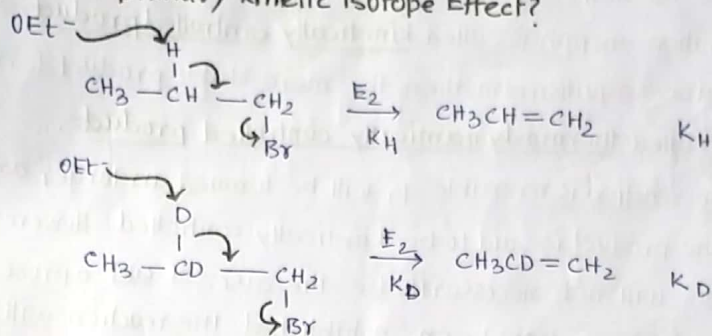 Kinetic Isotope Effect?
OEt
H
CH3 — CH — CH2 E2 CH3CH = CH2 KH
KH
Br
OEt
D
CH3 — CD — CH2 E2 CH3CD = CH2 KD
KD
Br